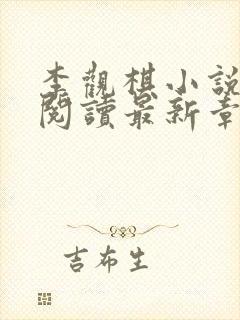 李觀棋小說
閱讀最新章
吉布生